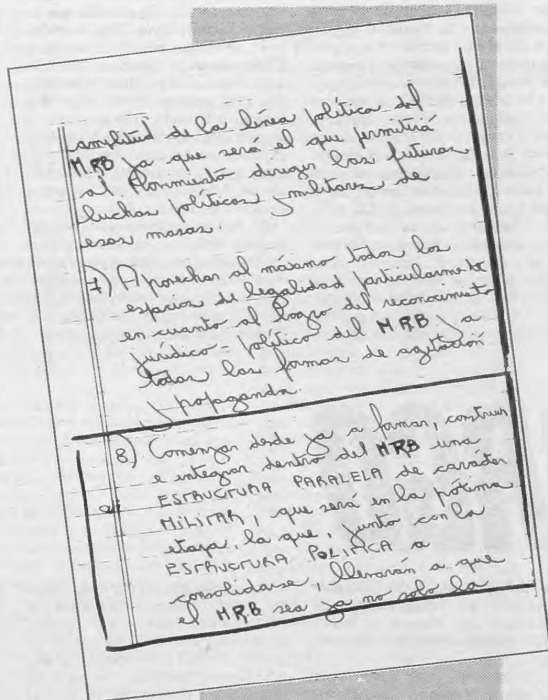 amplitud de la línea política del
MRB ya que será el que permitirá
al Movimiento dirigir las futuras
luchas políticas y militares de
esas masas.
7) Aprovechar al máximo todos los
espacios de legalidad particularmente
en cuanto al logro del reconocimiento
jurídico-político del MRB y a
todas las formas de agitación
y propaganda.
8) Comenzar desde ya a formar, construir
e integrar dentro del MRB una
ESTRUCTURA PARALELA de carácter
MILITAR, que será en la próxima
etapa, la que, junto con la
ESTRUCTURA POLITICA a
consolidarse, llevarán a que
el MRB sea ya no solo la